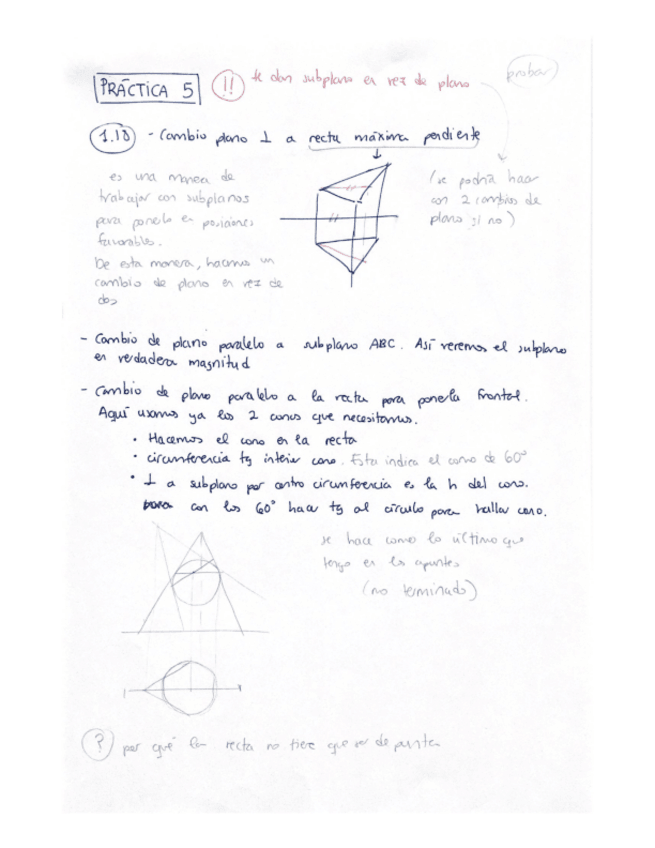 PRÁCTICA 5
!! te dan subplano en vez de plano
probar
1.18 - Cambio plano ⊥ a recta máxima pendiente
es una manera de
trabajar con subplanos
para ponerlo en posiciones
favorables.
De esta manera, hacemos un
cambio de plano en vez de
dos
(se podría hacer
con 2 cambios de
plano si no)
- Cambio de plano paralelo a subplano ABC. Así veremos el subplano
en verdadera magnitud
- Cambio de plano paralelo a la recta para ponerla frontal.
Aquí usamos ya los 2 conos que necesitamos.
• Hacemos el cono en la recta
• circunferencia tg interior cono. Esta indica el cono de 60°
• ⊥ a subplano por centro circunferencia es la h del cono.
con los 60° hacer tg al círculo para hallar cono.
se hace como lo último que
tengo en los apuntes
(no terminado)
? por qué la recta no tiene que ser de punta